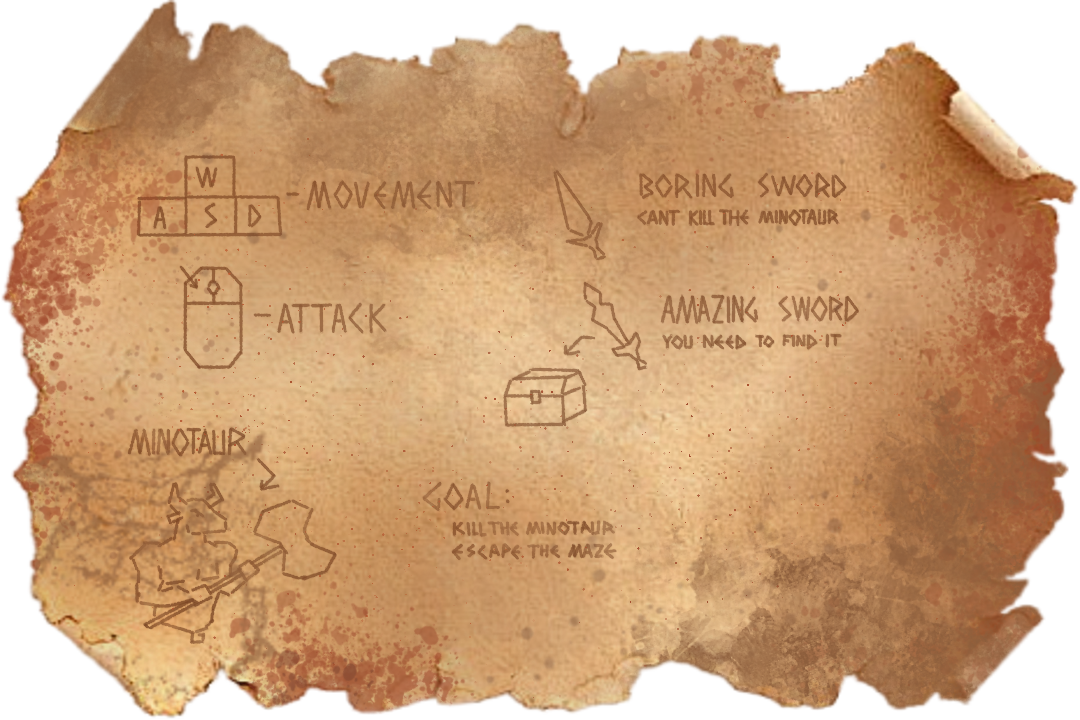 W
A S D
-MOVEMENT
-ATTACK
BORING SWORD
CANT KILL THE MINOTAUR
AMAZING SWORD
YOU NEED TO FIND IT
MINOTAUR
GOAL:
KILL THE MINOTAUR
ESCAPE THE MAZE